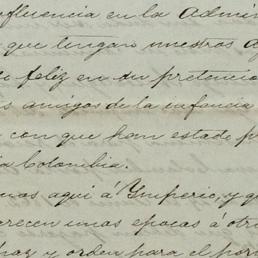 fluencia en la Admin
que tengan nuestros a
feliz en su pretencio
s amigos de la infancia
con que han estado pr
ia Colombia.
mos aquí á Ymperio, y qu
arecen unas epocas á otr
naz y orden para el por